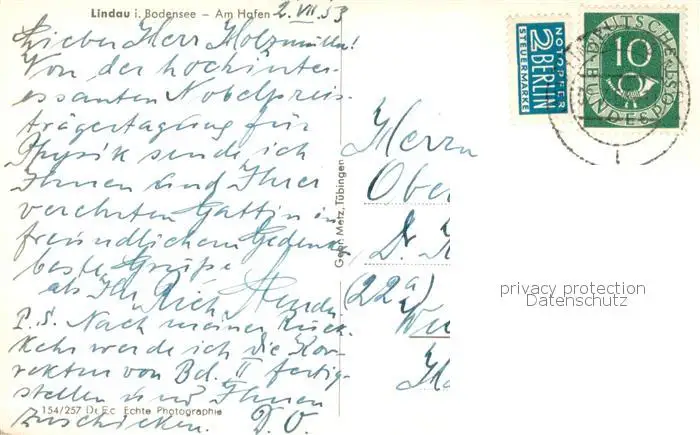 Lindau i. Bodensee – Am Hafen 2. VII. 53
Lieber Herr Holzmüller!
Von der hochinter-
essanten Nobelpreis-
trägertagung für
Physik sende ich
Ihnen und Ihrer
verehrten Gattin in
freundlichem Gedenken
beste Grüße
als Ihr Rich.
P.S. Nach meiner Rück-
kehr werde ich die Kor-
rektur von Bd. II fertig-
stellen und Ihnen
zuschicken. D. O.
154/257 Echte Photographie
Gebr. Metz, Tübingen
NOTOPFER
2 BERLIN
STEUERMARKE
DEUTSCHE BUNDESPOST
10
Herrn
Ober
Dr.
(22a)
Wu
privacy protection
Datenschutz